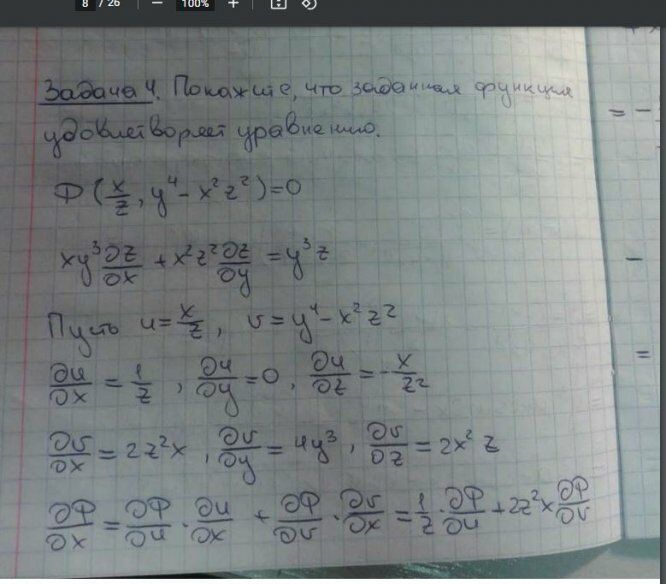 8 / 26 — 100% +
Задача 4. Покажите, что заданная функция
удовлетворяет уравнению.
Ф (x/z, y⁴ - x² z²) = 0
xy³ ∂z/∂x + x² z² ∂z/∂y = y³ z
Пусть u = x/z, v = y⁴ - x² z²
∂u/∂x = 1/z, ∂u/∂y = 0, ∂u/∂z = - x/z²
∂v/∂x = 2z²x, ∂v/∂y = 4y³, ∂v/∂z = 2x² z
∂Ф/∂x = ∂Ф/∂u · ∂u/∂x + ∂Ф/∂v · ∂v/∂x = 1/z · ∂Ф/∂u + 2z²x ∂Ф/∂v
= -
-
=